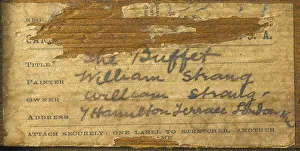 CAR
S. A.
TITLE The Buffet
PAINTER William Strang
OWNER William Strang
ADDRESS 7 Hamilton Terrace London NW
ATTACH SECURELY: ONE LABEL TO STRETCHER, ANOTHER